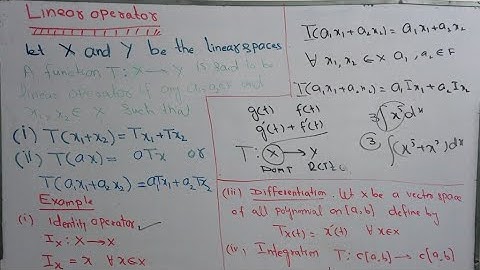 Linear operator
let X and Y be the linear spaces
A function T: X → Y is said to be
linear operator if any
x₁, x₂ ∈ X such that
(i) T(x₁+x₂) = Tx₁+Tx₂
(ii) T(ax) = aTx or
T(a₁x₁+a₂x₂) = a₁Tx₁+a₂Tx₂
Example
(i) Identity operator
Iₓ : X → X
Iₓ = x ∀ x∈X
I(a₁x₁+a₂x₂) = a₁x₁+a₂x₂
∀ x₁, x₂ ∈ X a₁, a₂ ∈ F
I(a₁x₁+a₂x₂) = a₁Ix₁+a₂Ix₂
g(t) f(t)
g'(t) + f'(t)
T: X → Y
Dom T R(T)
3∫x⁵dx
③ ∫(x³+x²)dx
(iii) Differentiation. Let X be a vector space
of all polynomial on [a,b] define by
Tx(t) = x'(t) ∀ x∈X
(iv) Integration T: C[a,b] → C[a,b]